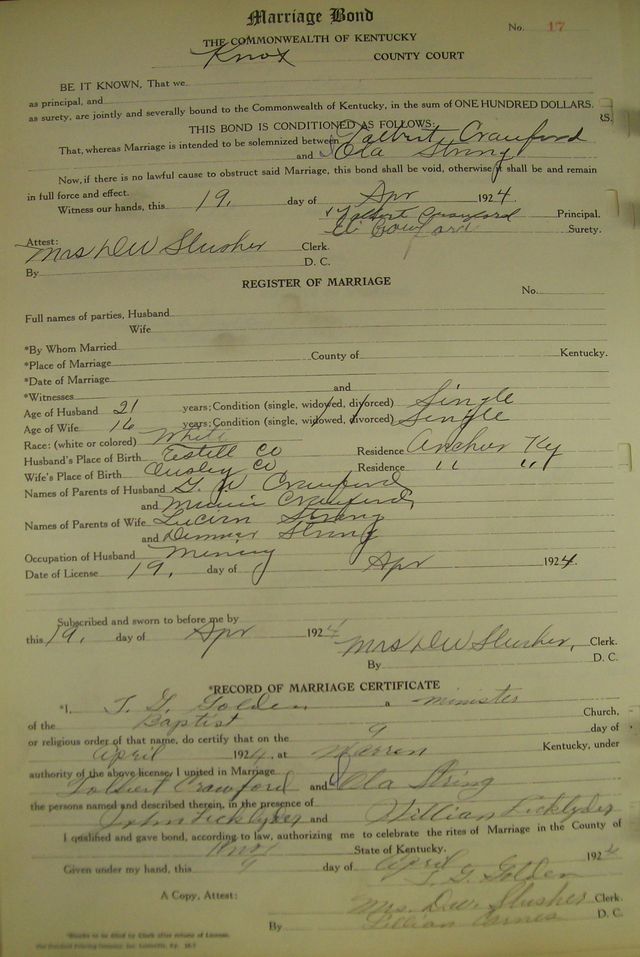 Marriage Bond
No. 17
THE COMMONWEALTH OF KENTUCKY
Knox COUNTY COURT
BE IT KNOWN, That we
as principal, and
as surety, are jointly and severally bound to the Commonwealth of Kentucky, in the sum of ONE HUNDRED DOLLARS.
RS.
THIS BOND IS CONDITIONED AS FOLLOWS:
That, whereas Marriage is intended to be solemnized between Talbert Crawford
and Ola Strong
Now, if there is no lawful cause to obstruct said Marriage, this bond shall be void, otherwise it shall be and remain
in full force and effect.
Witness our hands, this 19, day of Apr 1924.
Talbert Crawford Principal.
Crawford Surety.
Attest:
Mrs D W Slusher Clerk.
By D. C.
REGISTER OF MARRIAGE
No.
Full names of parties, Husband
Wife
*By Whom Married
*Place of Marriage County of Kentucky.
*Date of Marriage
*Witnesses and
Age of Husband 21 years; Condition (single, widowed, divorced) Single
Age of Wife 16 years; Condition (single, widowed, divorced) Single
Race: (white or colored) White
Husband's Place of Birth Estill Co Residence Anchor Ky
Wife's Place of Birth Ousley Co Residence " "
Names of Parents of Husband G. W Crawford
and Crawford
Names of Parents of Wife Strong
and Strong
Occupation of Husband Mining
Date of License 19, day of Apr 1924.
Subscribed and sworn to before me by
this 19, day of Apr 1924
Mrs D W Slusher, Clerk.
By D. C.
*RECORD OF MARRIAGE CERTIFICATE
*I, T. G. Golden a minister
of the Baptist Church,
or religious order of that name, do certify that on the 9 day of
April 1924, at Warren Kentucky, under
authority of the above license, I united in Marriage
Tolbert Crawford and Ola String
the persons named and described therein, in the presence of
John Ficklyder and Willian Ficklyder
I qualified and gave bond, according to law, authorizing me to celebrate the rites of Marriage in the County of
Knox State of Kentucky.
Given under my hand, this 9 day of April 192
T. G. Golden
A Copy, Attest: Mrs. D. W. Slusher Clerk.
By Lillian D. C.